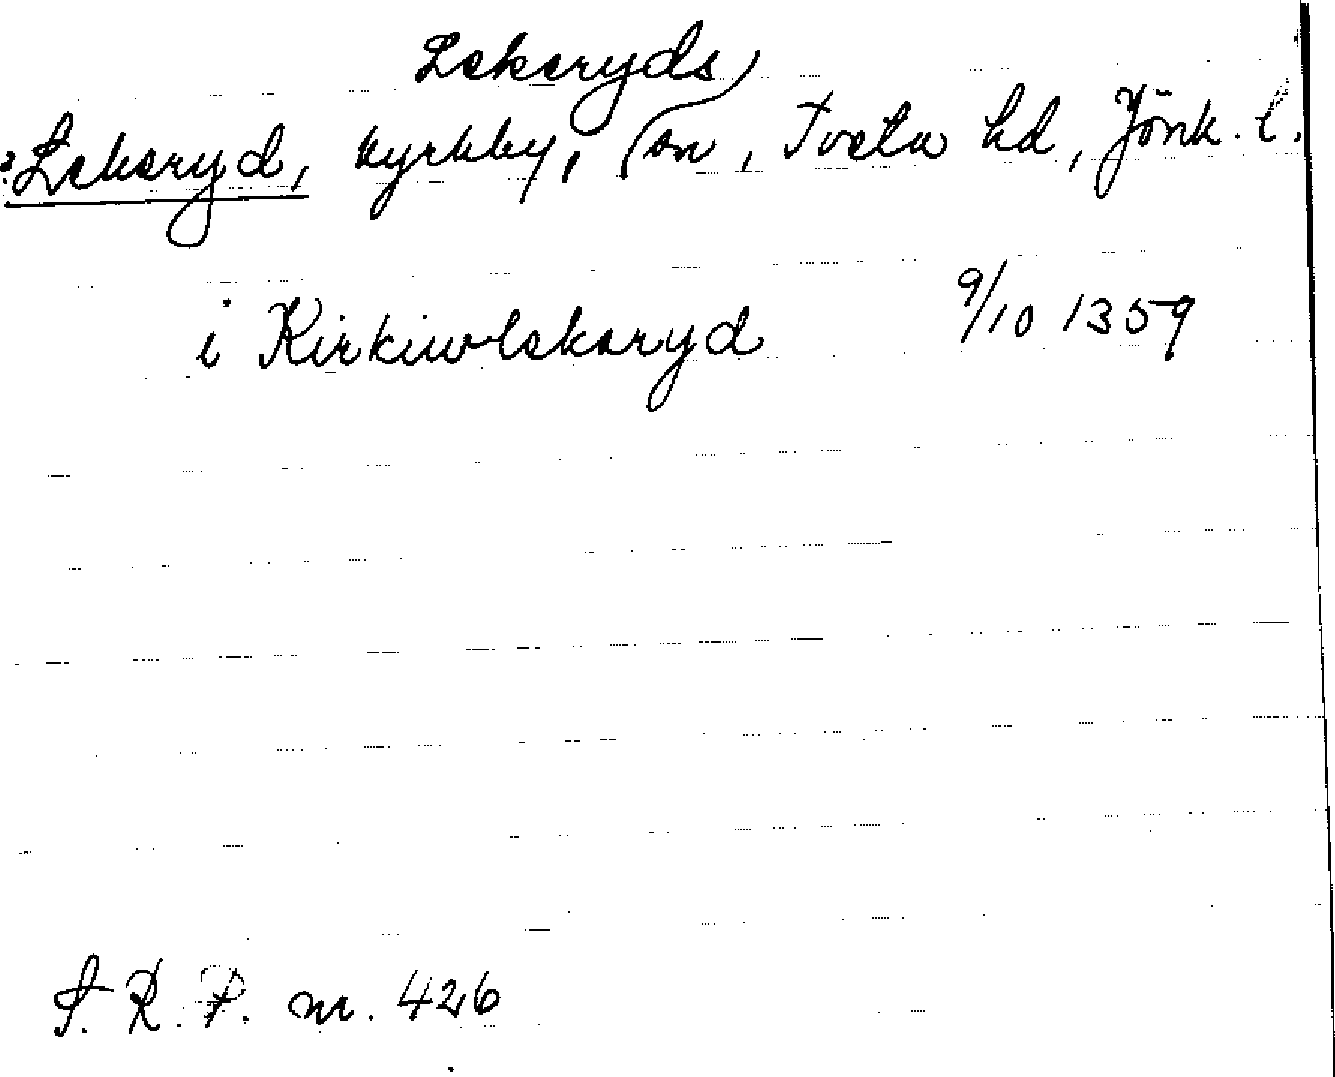 Lekeryds
?Lekeryd, kyrkby, sn, Tveta hd, Jönk. l.
i Kirkiwlekaryd 9/10 1359
S. R. P. nr. 426